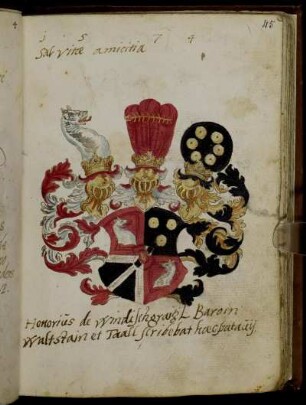 45
1 5 7 4
Sal vitæ amicitia
Honorius de Windischgratz L. Baro in
Waltstain et Taall scribebat hæc patavij